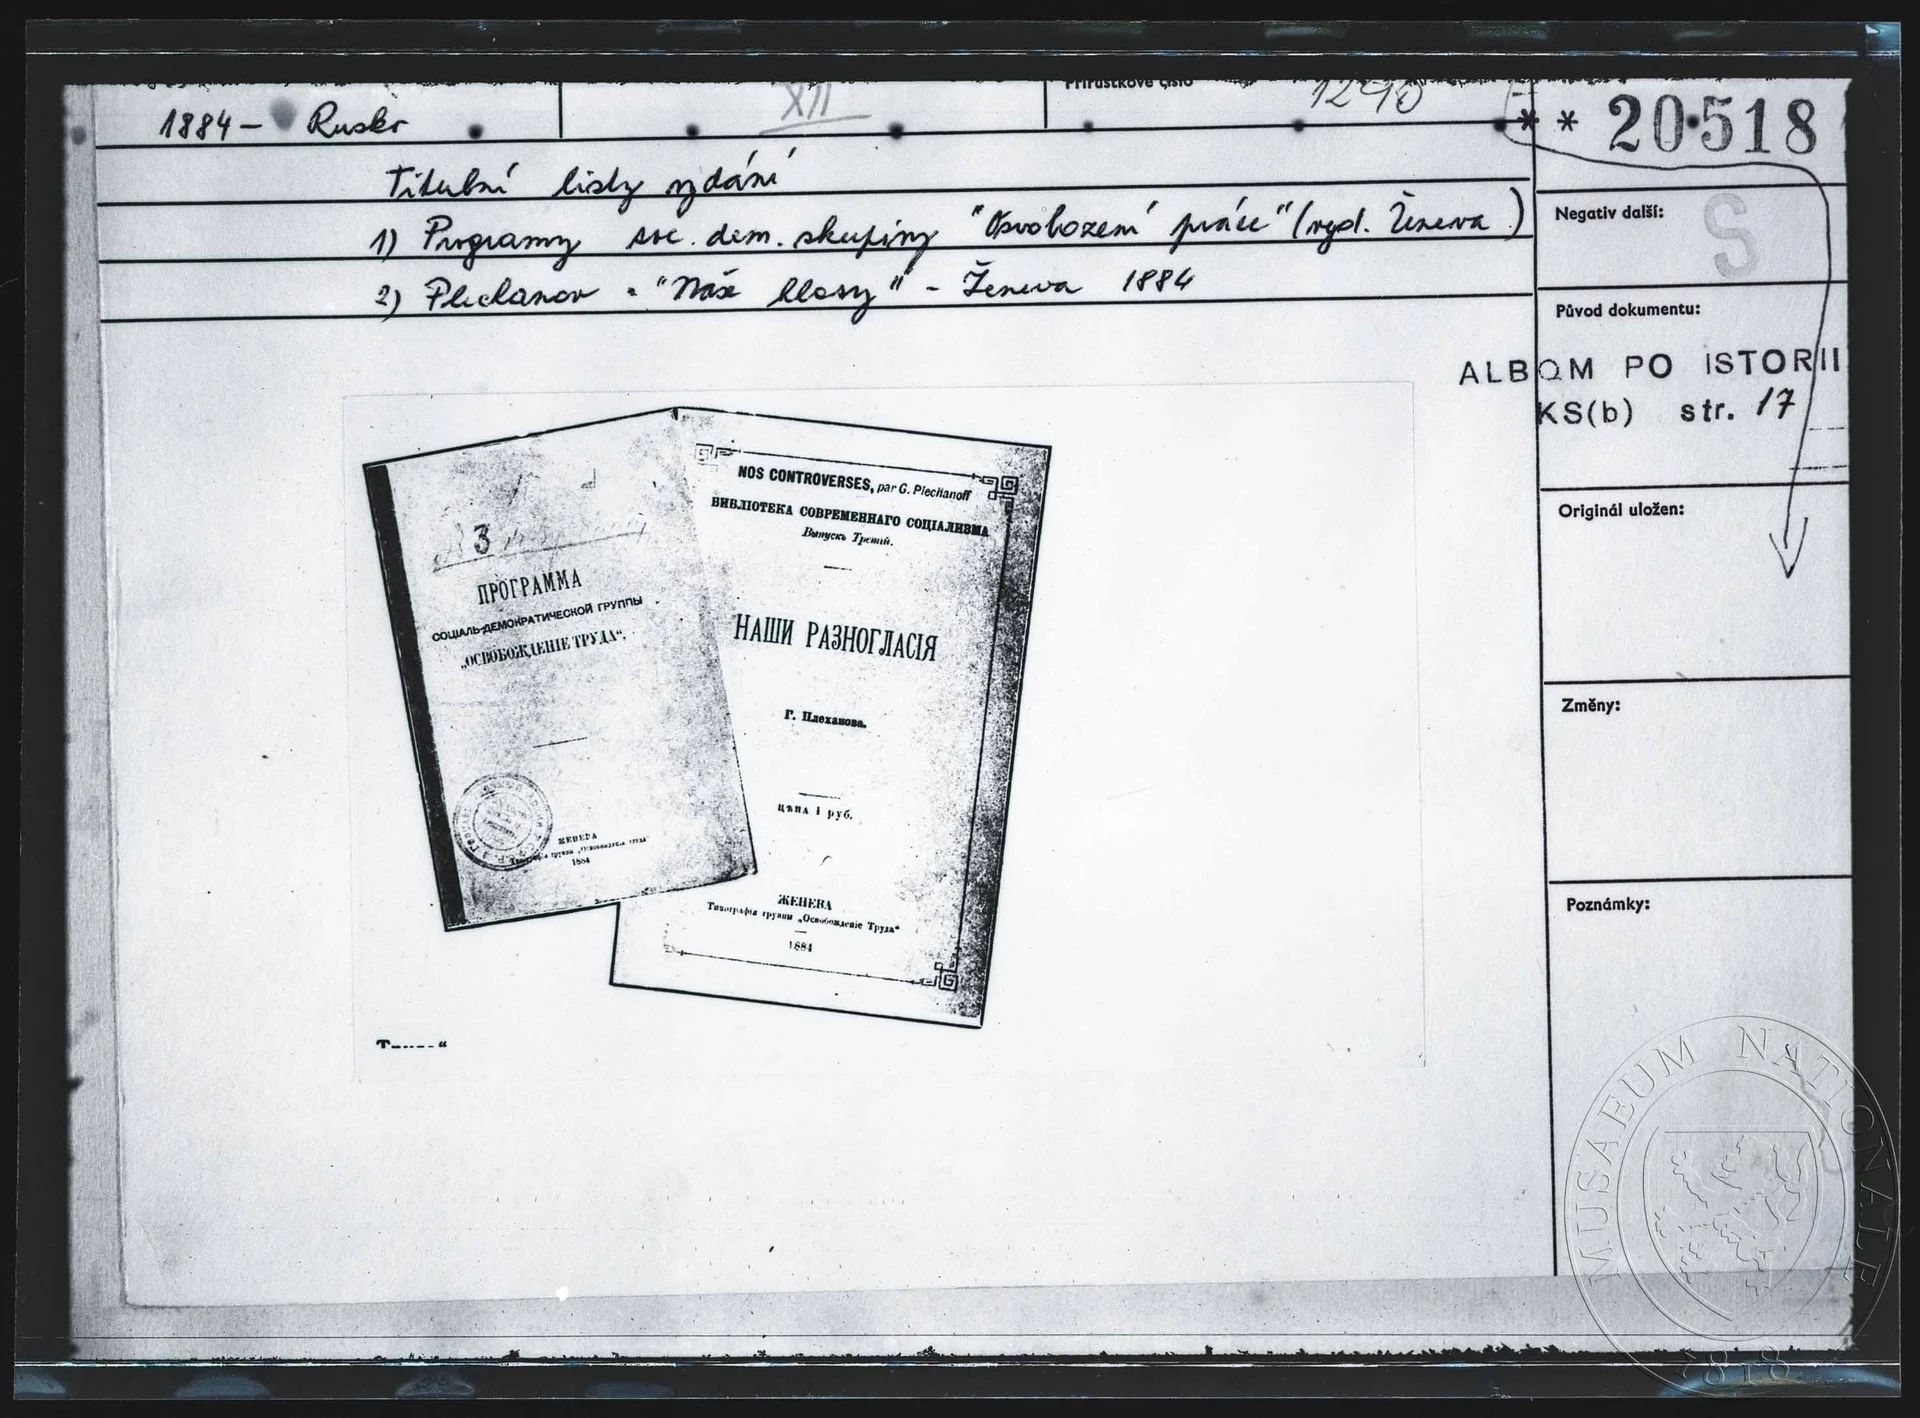 1884 – Rusko
XII
Přírůstkové číslo
1290
** 20518
Titulní listy vydání
1) Programy soc. dem. skupiny "Osvobození práce" (vyd. Ženeva)
2) Plechanov - "Náš hlasy" - Ženeva 1884
Negativ další:
S
Původ dokumentu:
ALBOM PO ISTORII
KS(b) str. 17
Originál uložen:
Změny:
Poznámky:
3
ПРОГРАММА
СОЦІАЛЬ-ДЕМОКРАТИЧЕСКОЙ ГРУППЫ
„ОСВОБОЖДЕНІЕ ТРУДА“.
ЖЕНЕВА
Типографія группы „Освобожденіе труда“
1884
NOS CONTROVERSES, par G. Plechanoff
БИБЛІОТЕКА СОВРЕМЕННАГО СОЦІАЛИЗМА
Выпускъ Третій.
НАШИ РАЗНОГЛАСІЯ
Г. Плеханова.
ЦѢНА 1 руб.
ЖЕНЕВА
Типографія группы „Освобожденіе Труда“
1884
MUSAEUM NATIONALE
1818